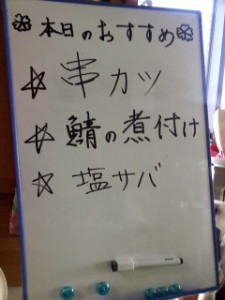 ❀本日のおすすめ❀
☆串カツ
☆鯖の煮付け
☆塩サバ